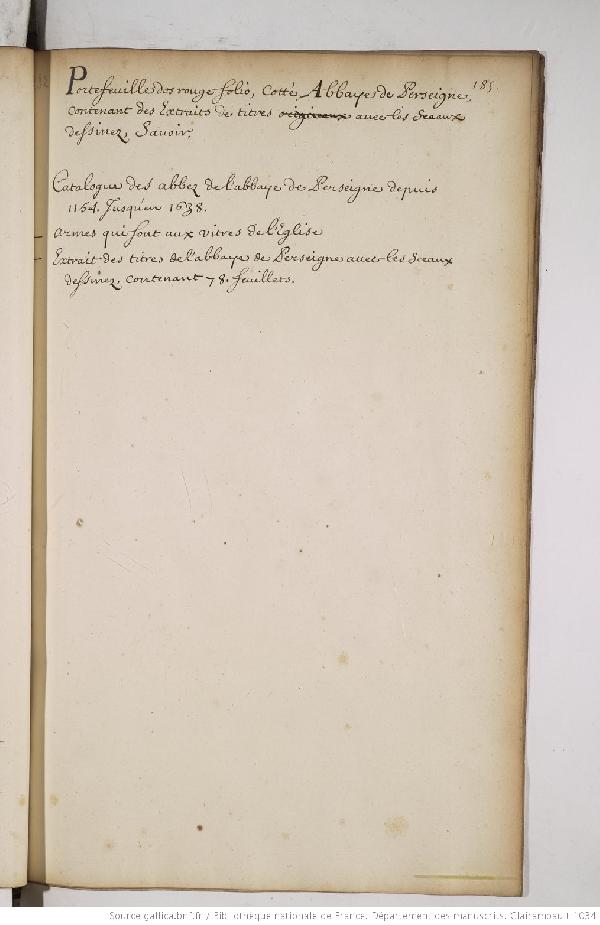 185.
Portefeuille dos rouge folio, Cotté, Abbayes de Perseigne,
contenant des Extraits de titres originaux avec les Sceaux
dessinez, Savoir,
Catalogue des abbez de l'abbaye de Perseigne depuis
1154. Jusqu'en 1638.
Armes qui sont aux vitres de l'Eglise
Extrait des titres de l'abbaye de Perseigne avec les Sceaux
dessinez, contenant 78. feuillets.
Source gallica.bnf.fr / Bibliothèque nationale de France. Département des manuscrits. Clairambault 1034